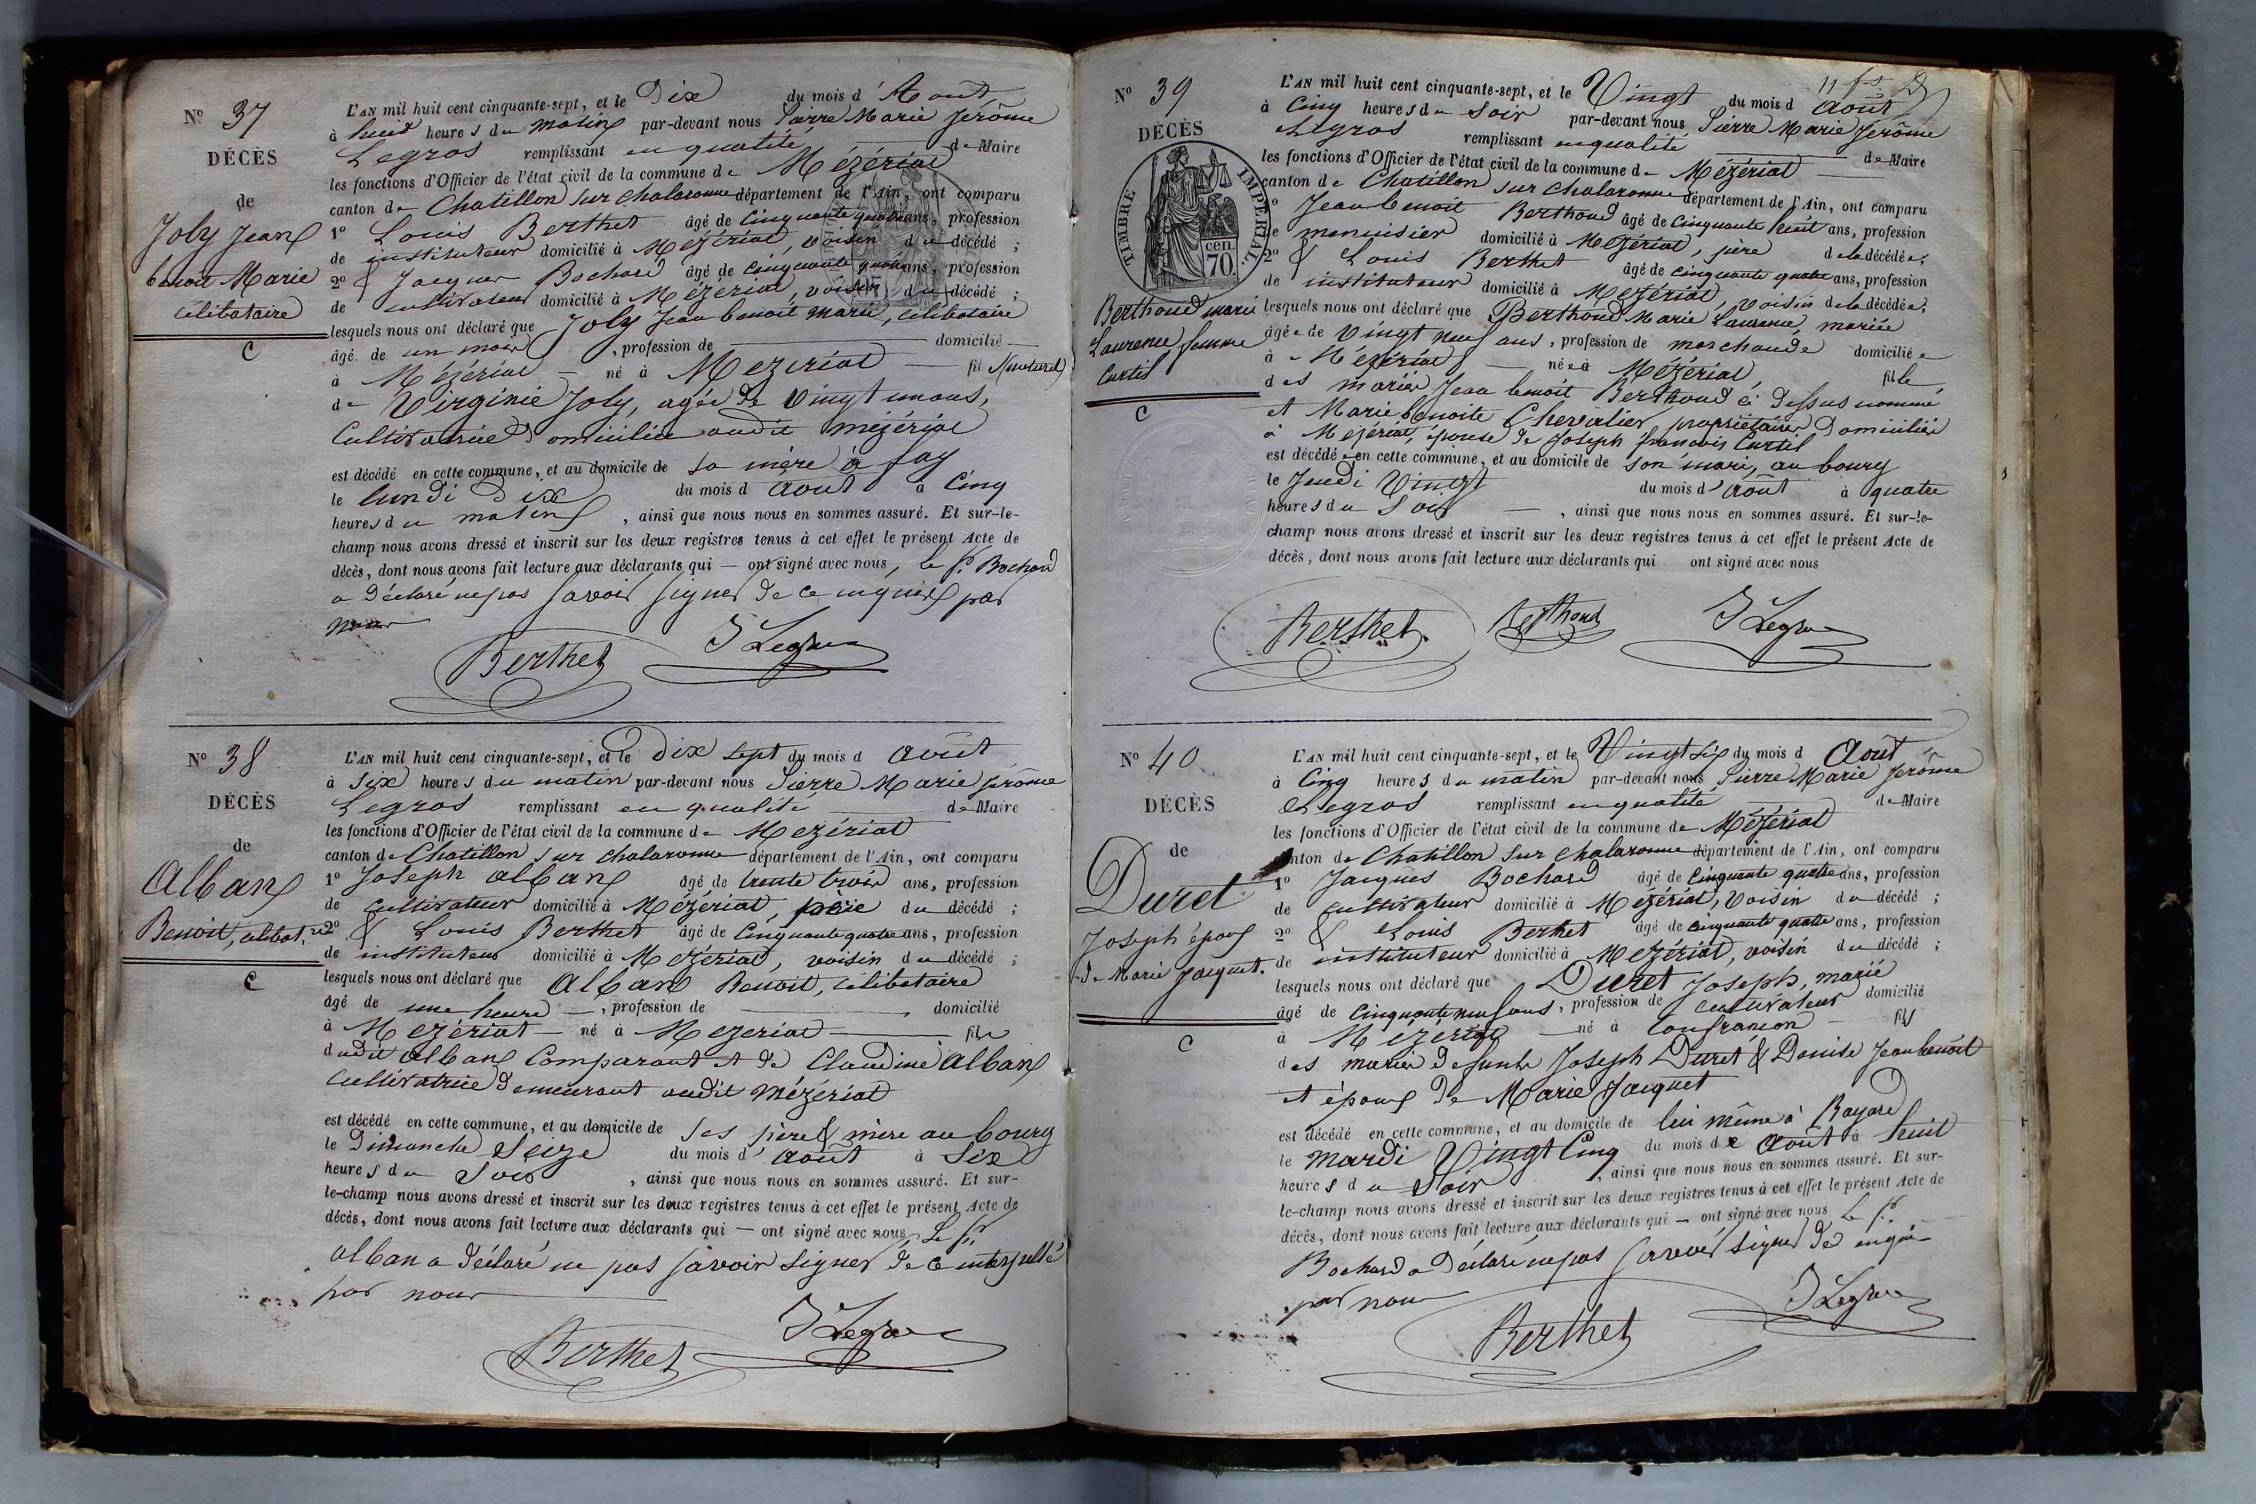 N° 37
DÉCÈS
de
Joly Jean
benoit Marie
célibataire
C
L'AN mil huit cent cinquante-sept, et le Dix du mois d'Août
à huit heures du matin par-devant nous Pierre Marie Jérôme
Legros remplissant en qualité de Maire
les fonctions d'Officier de l'état civil de la commune de Mézériat
canton de Chatillon sur Chalaronne département de l'Ain, ont comparu
1° Louis Berthet âgé de Cinquante quatre ans, profession
de instituteur domicilié à Mézériat, voisin du décédé ;
2° & Jacques Bochard âgé de Cinquante quatre ans, profession
de cultivateur domicilié à Mézériat, voisin du décédé ;
lesquels nous ont déclaré que Joly Jean benoit Marie, célibataire
âgé de un mois, profession de domicilié
à Mézériat né à Mezeriat fil N(naturel)
de Virginie Joly, agée de vingt un ans,
Cultivatrice domiciliée audit mézériat
est décédé en cette commune, et au domicile de sa mère à fay
le lundi Dix du mois d août à Cinq
heures du matin, ainsi que nous nous en sommes assuré. Et sur-le-
champ nous avons dressé et inscrit sur les deux registres tenus à cet effet le présent Acte de
décès, dont nous avons fait lecture aux déclarants qui — ont signé avec nous, le Sr. Bochard
a déclaré ne pas savoir signer de ce enquis par
nous
Berthet J Legros
N° 38
DÉCÈS
de
Alban
Benoit, célibat.re
C
L'AN mil huit cent cinquante-sept, et le Dix sept du mois d août
à six heures du matin par-devant nous Pierre Marie Jérôme
Legros remplissant en qualité de Maire
les fonctions d'Officier de l'état civil de la commune de Mézériat
canton de Chatillon sur Chalaronne département de l'Ain, ont comparu
1° Joseph alban âgé de trente trois ans, profession
de cultivateur domicilié à Mézériat, père du décédé ;
2° & Louis Berthet âgé de Cinquante quatre ans, profession
de instituteur domicilié à Mézériat, voisin du décédé ;
lesquels nous ont déclaré que Alban Benoit, célibataire
âgé de une heure, profession de , domicilié
à Mézériat né à Mezeriat fils
dudit alban Comparant et de Claudine Alban
cultivatrice demeurant audit Mézériat
est décédé en cette commune, et au domicile de ses père & mère au bourg
le Dimanche Seize du mois d'août à Six
heures du Soir, ainsi que nous nous en sommes assuré. Et sur-
le-champ nous avons dressé et inscrit sur les deux registres tenus à cet effet le présent Acte de
décès, dont nous avons fait lecture aux déclarants qui — ont signé avec nous, Le Sr.
alban a déclaré ne pas savoir signer de ce interpellé
par nous
Berthet J Legros
11 fs
N° 39
DÉCÈS
TIMBRE IMPÉRIAL.
70. cen.
Berthoud marie
Laurence femme
Curtil
C
L'AN mil huit cent cinquante-sept, et le Vingt du mois d Août
à Cinq heures du Soir par-devant nous Pierre Marie Jérôme
Legros remplissant en qualité de Maire
les fonctions d'Officier de l'état civil de la commune de Mézériat
canton de Chatillon sur Chalaronne département de l'Ain, ont comparu
1° Jean benoit Berthoud âgé de Cinquante huit ans, profession
de menuisier domicilié à Mézériat, père de la décédée ;
2° & Louis Berthet âgé de cinquante quatre ans, profession
de instituteur domicilié à Mézériat, voisin de la décédée,
lesquels nous ont déclaré que Berthoud Marie Laurence, mariée
âgée de Vingt neuf ans, profession de marchande domiciliée
à Mézériat née à Mézériat fille
des mariés Jean benoit Berthoud ci dessus nommé
et Marie benoite Chevalier propriétaires Domiciliés
à Mézériat, épouse de Joseph francois Curtil
est décédée en cette commune, et au domicile de son mari, au bourg
le Jeudi Vingt du mois d'août à quatre
heures du Soir, ainsi que nous nous en sommes assuré. Et sur-le-
champ nous avons dressé et inscrit sur les deux registres tenus à cet effet le présent Acte de
décès, dont nous avons fait lecture aux déclarants qui ont signé avec nous
Berthet Berthoud J Legros
N° 40
DÉCÈS
de
Duret
Joseph époux
de Marie Jacquet.
C
L'AN mil huit cent cinquante-sept, et le Vingt six du mois d Août
à Cinq heures du matin par-devant nous Pierre Marie Jérôme
Legros remplissant en qualité de Maire
les fonctions d'Officier de l'état civil de la commune de Mézériat
canton de Chatillon sur Chalaronne département de l'Ain, ont comparu
1° Jacques Bochard âgé de Cinquante quatre ans, profession
de cultivateur domicilié à Mézériat, Voisin du décédé ;
2° & Louis Berthet âgé de cinquante quatre ans, profession
de instituteur domicilié à Mézériat, voisin du décédé ;
lesquels nous ont déclaré que Duret Joseph, marié
âgé de Cinquante neuf ans, profession de cultivateur domicilié
à Mézériat né à Confrancon fils
des mariés defunts Joseph Duret & Denise Jean benoit
et époux de Marie Jacquet
est décédé en cette commune, et au domicile de lui même à Bayard
le Mardi Vingt Cinq du mois de Août à huit
heures du Soir, ainsi que nous nous en sommes assuré. Et sur-
le-champ nous avons dressé et inscrit sur les deux registres tenus à cet effet le présent Acte de
décès, dont nous avons fait lecture aux déclarants qui — ont signé avec nous Le Sr.
Bochard a déclaré ne pas savoir signer de enquis
par nous
Berthet J Legros